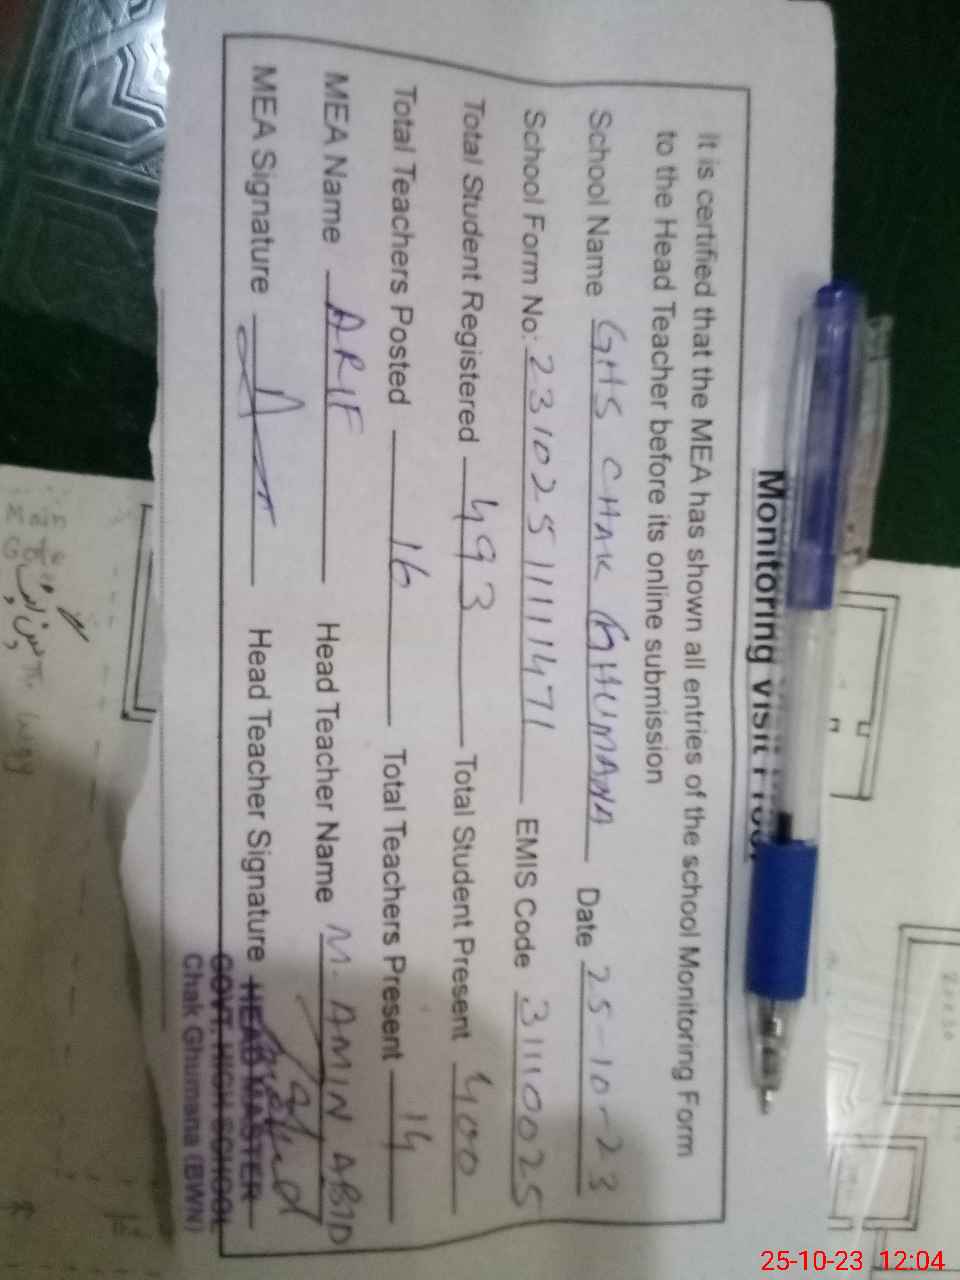 Monitoring Visit
It is certified that the MEA has shown all entries of the school Monitoring Form
to the Head Teacher before its online submission
School Name GHS CHAK GHUMANA Date 25-10-23
School Form No: 23102511111471 EMIS Code 31110025
Total Student Registered 493 Total Student Present 400
Total Teachers Posted 16 Total Teachers Present 14
MEA Name ARIF Head Teacher Name M. AMIN ABID
MEA Signature Head Teacher Signature
HEAD MASTER
GOVT. HIGH SCHOOL
Chak Ghumana (BWN)
Main
Gate
25-10-23 12:04